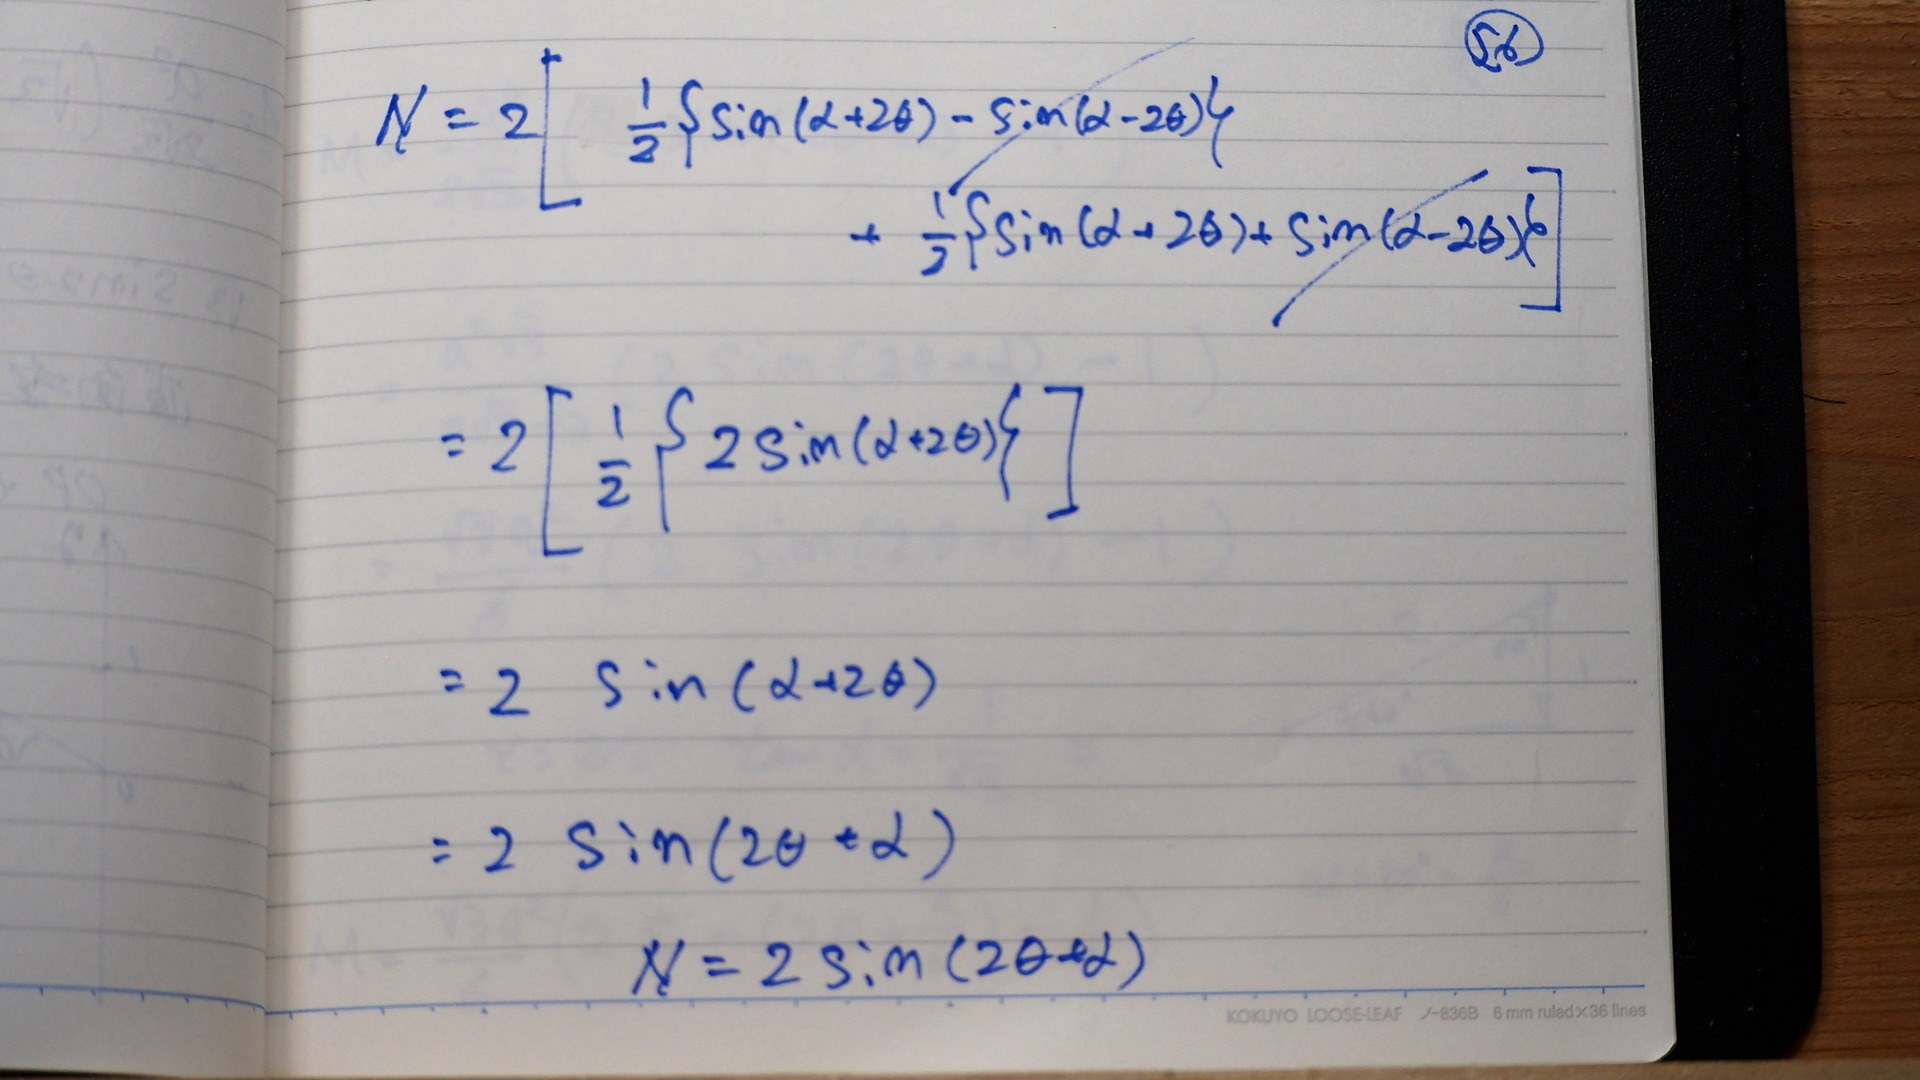 56
N = 2[ 1/2{sin(α+2θ) - sin(α-2θ)}
+ 1/2{sin(α+2θ)+ sin(α-2θ)}]
= 2[ 1/2{2 sin(α+2θ)} ]
= 2 sin(α+2θ)
= 2 sin(2θ+α)
N = 2 sin(2θ+α)
KOKUYO LOOSE-LEAF ノ-836B 6 mm ruled×36 lines